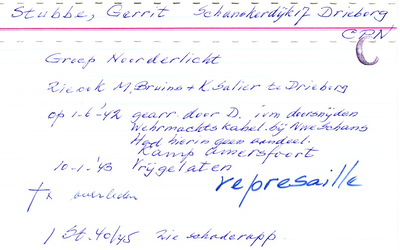 Stubbe, Gerrit Schanskerdijk 17 Drieborg
CPN
Groep Noorderlicht
Zie ook M. Bruins + K. Salier te Drieborg
op 1-6-'42 gearr. door D. ivm doorsnijden
Wehrmachtskabel bij Nwe Schans
Had hierin geen aandeel.
Kamp Amersfoort
10-1-'43 Vrijgelaten
represaille
overleden
1 St. 40/45 zie schaderapp.